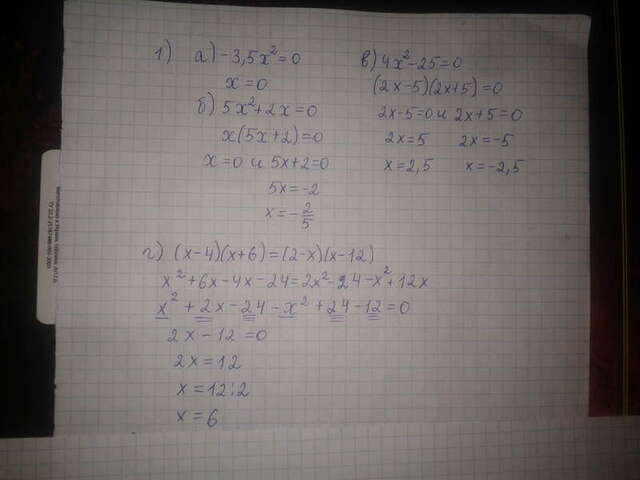 1) а) -3,5x²=0
x=0
б) 5x²+2x=0
x(5x+2)=0
x=0 и 5x+2=0
5x=-2
x=-2/5
в) 4x²-25=0
(2x-5)(2x+5)=0
2x-5=0 и 2x+5=0
2x=5 2x=-5
x=2,5 x=-2,5
г) (x-4)(x+6)=(2-x)(x-12)
x²+6x-4x-24=2x²-24-x²+12x
x²+2x-24-x²+24-12=0
2x-12=0
2x=12
x=12:2
x=6